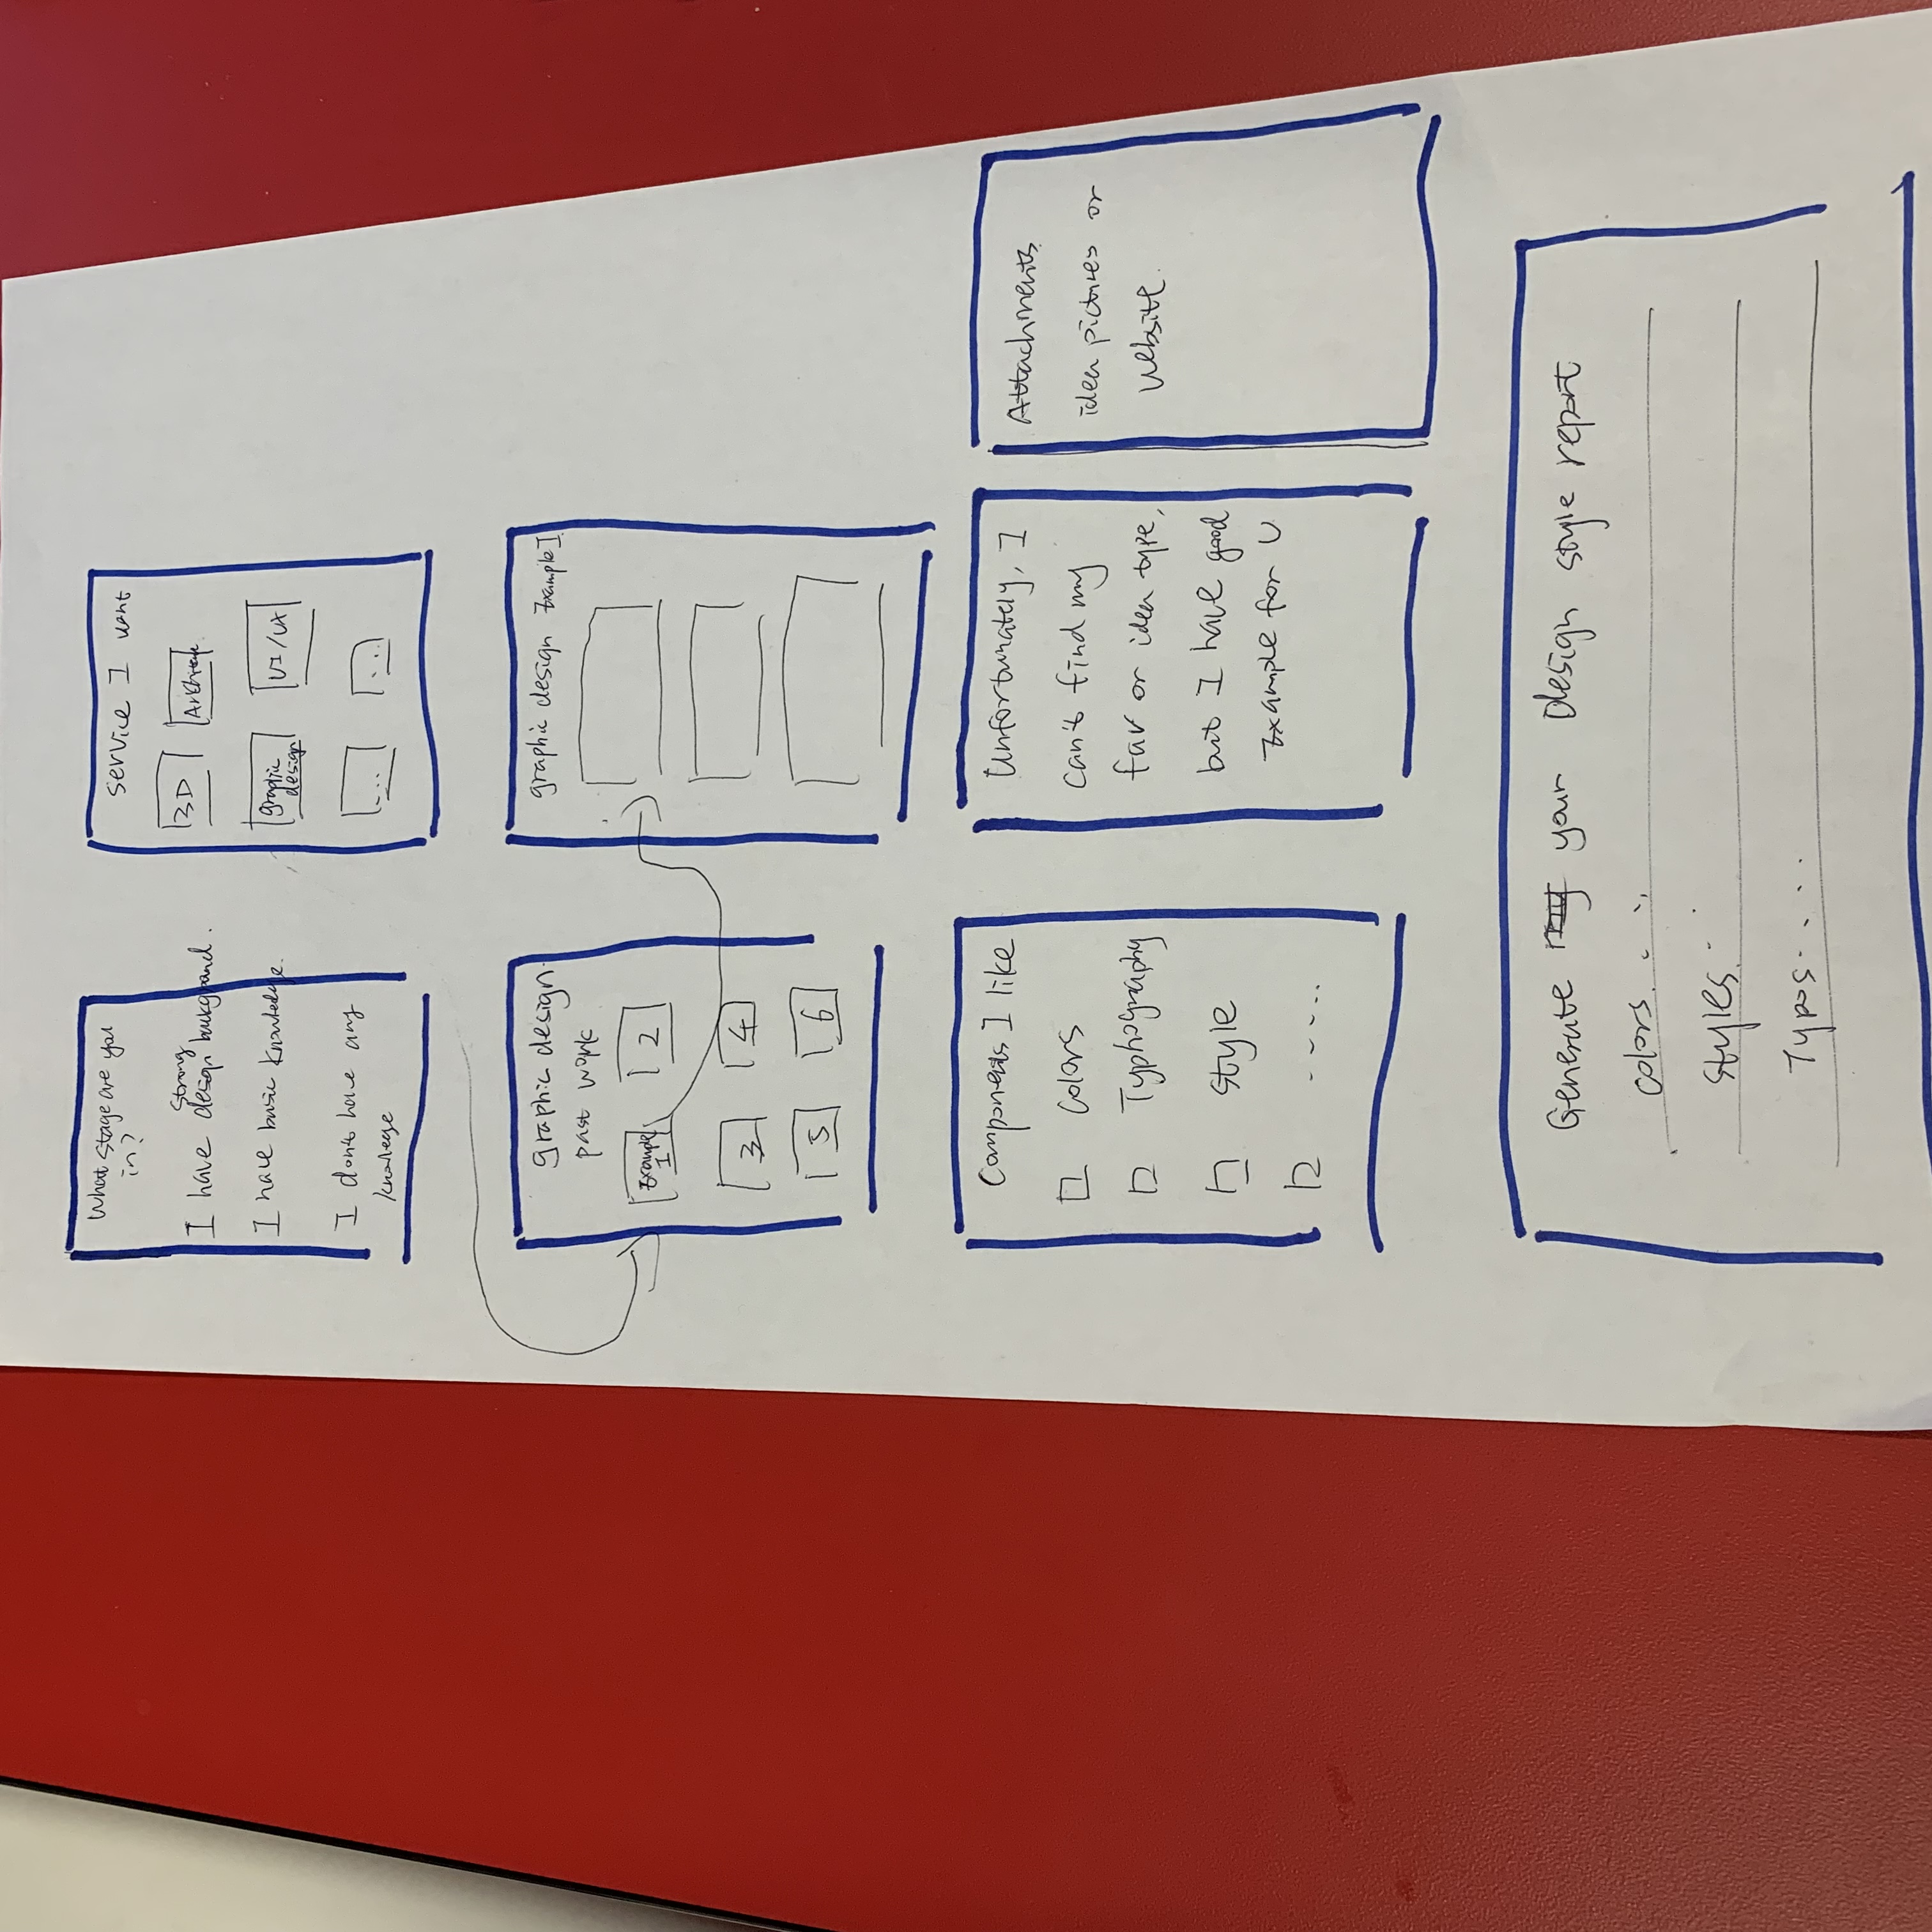 What stage are you
in?
I have strong design background.
I have basic knowledge.
I don't have any
service I want
3D
graphic
design
UI/UX
...
...
graphic design
past work
Example
1
2
3
4
5
6
graphic design Example 1
Components I like
colors
Typhography
style
.....
Unfortunately, I
can't find my
fav or idea type,
but I have good
Example for U
Attachments
idea pictures or
website.
Generate my your Design style report
colors...
styles..
Typos.....